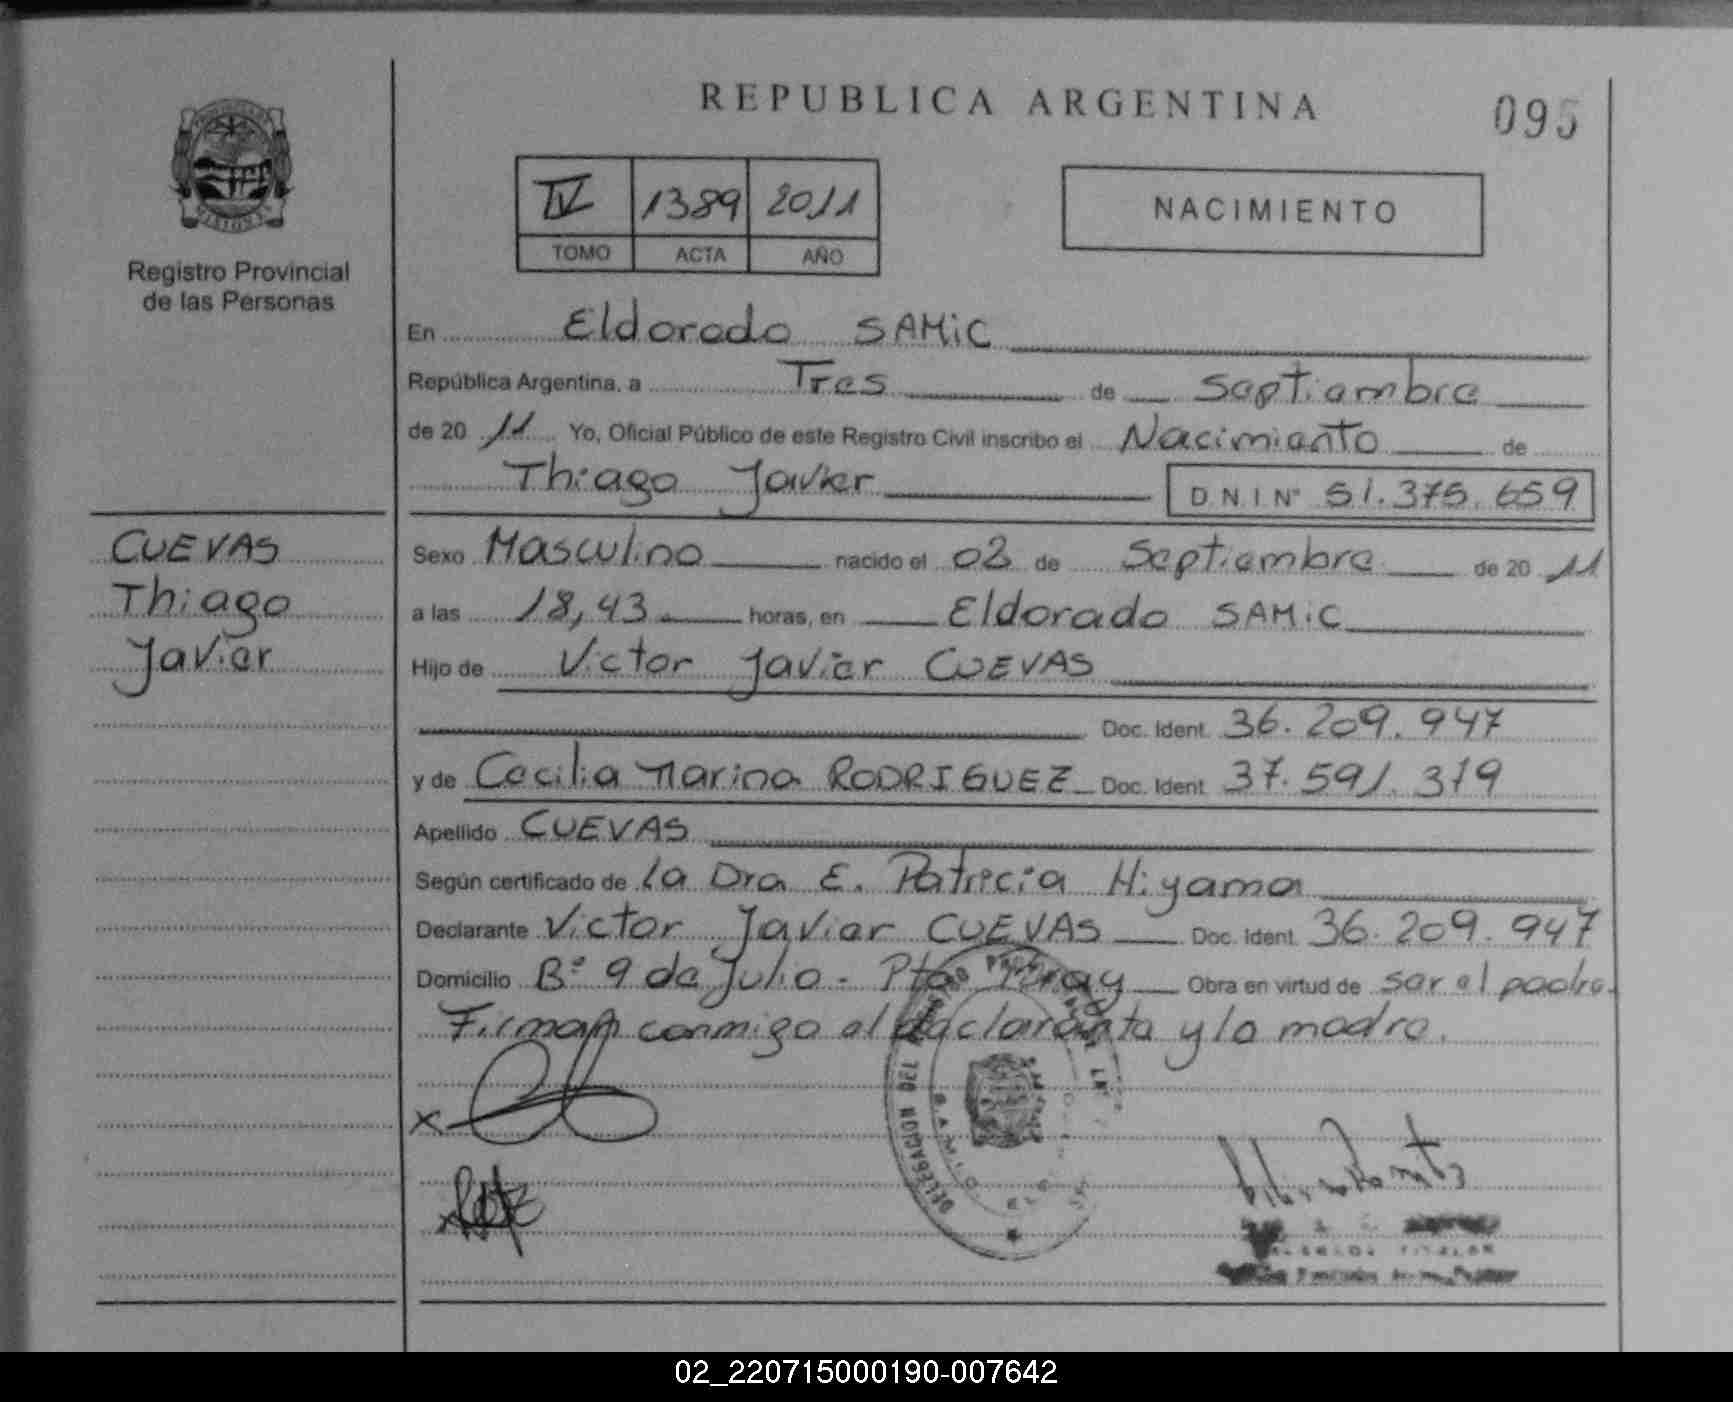 REPUBLICA ARGENTINA
095
IV 1389 2011
TOMO ACTA AÑO
NACIMIENTO
Registro Provincial
de las Personas
CUEVAS
Thiago
Javier
En Eldorado SAMiC
República Argentina, a Tres de Septiembre
de 20 11 Yo, Oficial Público de este Registro Civil inscribo el Nacimiento de
Thiago Javier D.N.I Nº 51.375.659
Sexo Masculino nacido el 02 de Septiembre de 20 11
a las 18,43 horas, en Eldorado SAMiC
Hijo de Victor Javier CUEVAS
Doc. Ident. 36.209.947
y de Cecilia Marina RODRIGUEZ Doc. Ident. 37.591.319
Apellido CUEVAS
Según certificado de la Dra E. Patricia Hiyama
Declarante Victor Javier CUEVAS Doc. Ident. 36.209.947
Domicilio Bº 9 de Julio - Pto Piray Obra en virtud de ser el padre.
Firman conmigo el declarante y la madre.
DELEGACION DEL
02_220715000190-007642